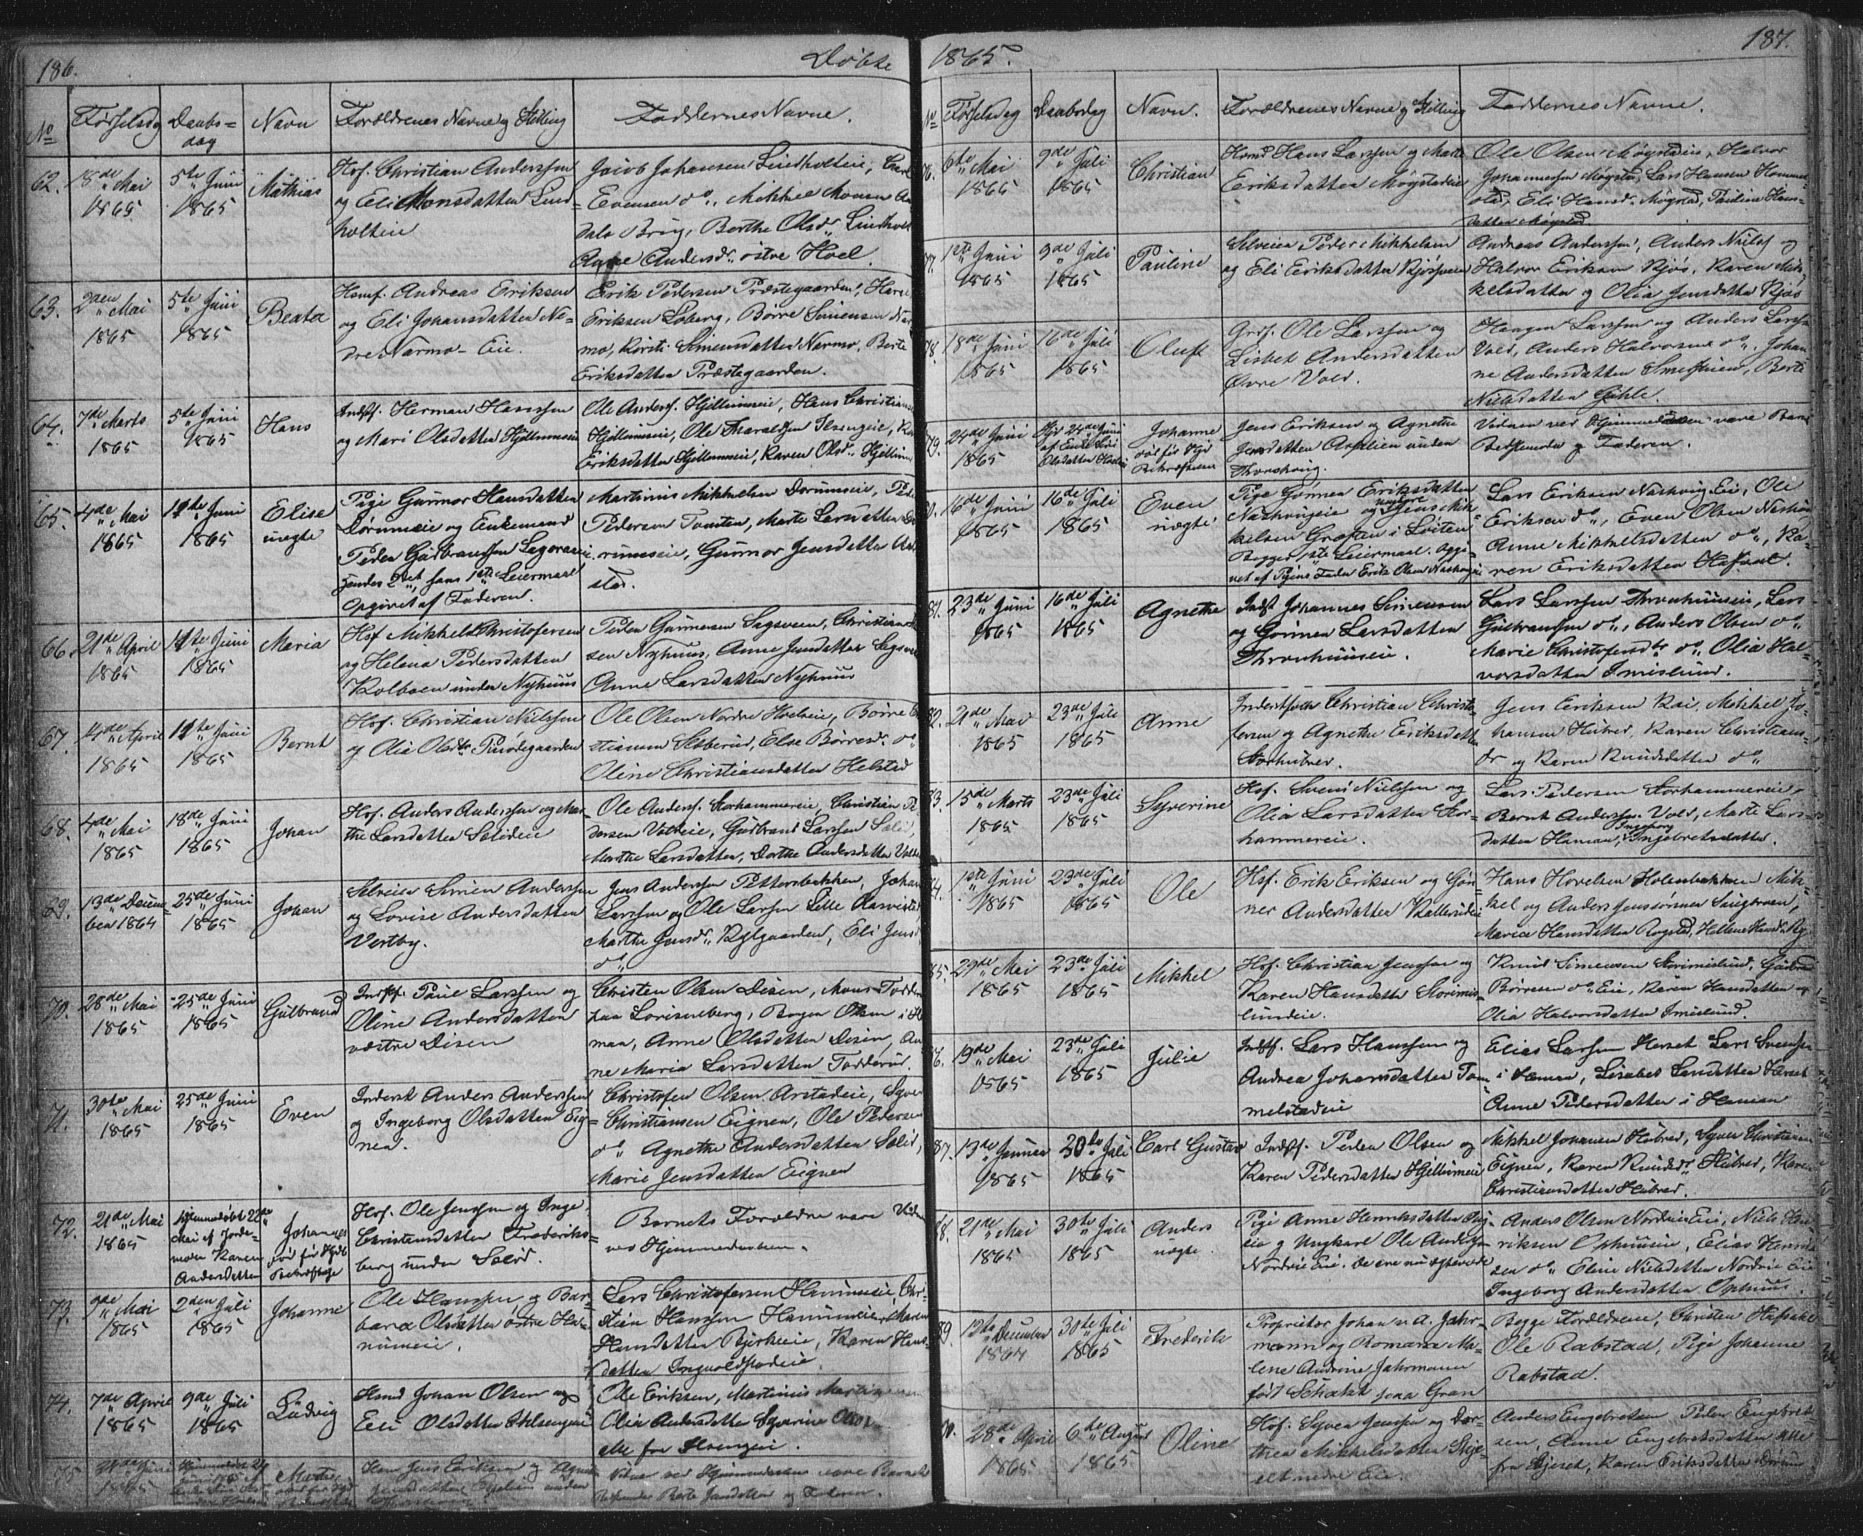 186.
Døbte
No
Fødselsdag
Daabs-
dag
Navn
Forældrenes Navne og Stilling
Faddernes Navne.
62.
18de Mai
1865
5te Juni
1865
Mathias
Hof. Christian Anderssen
og Eli Monsdatter Lind-
holteie
Jacob Johansen Lindholteie,
Evensen do, Mikkel Monsen
dals Brug, Berthe Olsdr. Lindholt
Anne Andersdr. østre Hoel.
63.
2den Mai
1865
5te Juni
1865
Beata
Husmf. Andreas Eriksen
og Eli Johansdatter Ne-
dre Narmo-Eie.
Erik Pedersen Præstegaarden,
Eriksen Løberg, Børre Simensen Nar-
mo, Kirsti Simensdatter Narmo, Berte
Eriksdatter Præstegaarden.
64.
7de Marts
1865
5te Juni
1865
Hans
Indstf. Herman Hanssen
og Mari Olsdatter Hjellumseie
Ole Anderss. Hjellumseie, Hans Christian
Hjellumseie, Ole
Eriksdatter Hjellumseie, Karen Olsdr. Hjellum
65.
4de Mai
1865
11te Juni
1865
Elise
uægte
Pige Gunnor Hansdatter
Dørumseie og Enkemand
Peder Gulbrandssen
hendes 2det hans 1ste Leiermaal
Opgivet af Faderen.
Martinus Mikkelsen Dørumseie, Peder
Pedersen Tomten, Marte Larsdatter Dø-
rumseie, Gunnor Jensdatter
stad.
66.
21de April
1865
11te Juni
1865
Maria
Hof. Mikkel Christofersen
og Helena Pedersdatter
Kolboen under Nyhuus
Peder Gunnersen Sagsveen, Christian
sen Nyhuus, Anne Jensdatter Sagsveen
Anne Larsdatter Nyhuus
67.
4de April
1865
11te Juni
1865
Bernt
Hof. Christian Nielssen
og Olia Olsdtr. Præstegaarden
Ole Olsen Nordre Hoelseie, Børre
stiansen Sæberud, Else Børresdr. do
Oline Christiansdatter Helstad
68.
4de Mai
1865
18de Juni
1865
Johan
Hof. Anders Anderssen og Mar-
the Larsdatter Solideie
Ole Anderss. Storhammereie, Christian Pe-
dersen Voldeie, Gulbrand Larssen Solid,
Marthe Larsdatter, Dorthe Andersdatter Vold
69.
13de Decem-
ber 1864
25de Juni
1865
Johan
Selveier Simen Anderssen
og Lovise Andersdatter
Vestby.
Jens Anderssen Pettersbakken, Johan
Larssen og Ole Larsen Lille
Marthe Jensdr. Kjelgaarden, Eli Jensd.
do
70.
28de Mai
1865
25de Juni
1865
Gulbrand
Indstf. Paul Larssen og
Oline Andersdatter
vestre Disen
Christen Olsen Disen, Mons Fodderud
paa Lovisenberg, Bøger Olsen i Ha-
mar, Anne Olsdatter Disen, An-
ne Maria Larsdatter Fodderud.
71.
30te Mai
1865
25de Juni
1865
Even
Inderst Anders Anderssen
og Ingeborg Olsdatter Eig-
ner.
Christofer Olsen Arstadeie, Syver
Christiansen Eignen, Ole Pedersen
do Agnethe Andersdatter Solid,
Marie Jensdatter Eignen
72.
21de Mai
1865
Hjemmedøbt 22de
Mai af Jorde-
moder Karen
Andersdatter
Johannes
død før Daabs
Bekræftelse
Hof. Ole Jenssen og Inge
Christensdatter Frederiks-
berg under Solid.
Barnets Forældre vare Vidner
ved Hjemmedaaben.
73.
9de Mai
1865
2den Juli
1865
Johanne
Ole Hanssen og Bar-
bara Olsdatter østre Ha-
numeie.
Lars Christofersen Hanumeie, Chr-
stian Hanssen Hanumeie, Maren
Hansdatter Bjerkeeie, Karen Hans-
datter Ingvoldstadeie.
74.
7de April
1865
9de Juli
1865
Ludvig
Husmd Johan Olsen og
Eli Olsdatter Ilsengeie
Ole Eriksen, Martinus Martin
Olia Andersdatter Syverine Olsd.
alle fra Ilsengeie.
75
24de Juni
1865
Marte
Hsm. Jens Eriksen og Agne
Jensdatter Opelien under
Vidner ved Hjemmedaaben vare Barnets
Bedstemoder Berte Jensdatter og Faderen.
1865.
187.
No
Fødselsdag
Daabsdag
Navn.
Forældrenes Navne og Stilling
Faddernes Navne.
76.
6te Mai
1865
9de Juli
1865
Christian
Husmd Hans Larssen og Marte
Eriksdatter Møgstadeie
Ole Olsen Møgstadeie, Halvor
Johannessen Møgstad, Lars Hansen Hommer-
stad, Eli Hansd. Møgstad, Pauline Hans-
datter Møgstad
77.
1ste Juni
1865
9de Juli
1865
Pauline
Selveier Peder Mikkelsen
og Eli Eriksdatter Kjøs
Andreas Anderssen, Anders Nielss. og
Halvor Eriksen Kjøs, Karen Mik-
kelsdatter og Olia Jensdatter Kjøs
78.
18de Juni
1865
16de Juli
1865
Oluf
Grdf. Ole Larssen og
Lisbet Andersdatter
Øvre Vold.
Haagen Larssen og Anders Larssen
Vold, Anders Halvorsen do, Johan-
ne Andersdatter Smedsieien, Berte
Nielsdatter Gihle.
79.
24de Juni
1865
Hjd. 24de Juni
Johanne
død før Kjv
Bekræftelsen
Jens Eriksen og Agnethe
Jensdatter Opelien under
Thorshaug.
Vidner ved Hjemmedaaben vare Barnets
Bedstemoder og Faderen.
80.
16de Juni
1865
16de Juli
1865
Even
uægte
Pige Gønner Eriksdatter
Naskvigeie og Ungkarl Jens Mik-
kelsen Grøften i Løiten
Begges 1ste Leiermaal. Opgi-
vet af Pigens Fader Erik Olsen Naskvigeie
Lars Eriksen Naskvig Eie, Ole
Eriksen do, Even Olsen Naskvig
Anne Mikkelsdatter do, Ka-
ren Eriksdatter Hafsæt.
81.
23de Juni
1865
16de Juli
1865
Agnethe
Indst Johannes Simensen
og Gønner Larsdatter
Thronhuuseie.
Lars Larssen Thronhuuseie, Lars
Gulbrandsen do, Anders Olsen do,
Marie Christofersdtr. do. Olia Hal-
vorsdatter Imislund.
82.
21de Mai
1865
23de Juli
1865
Anne
Inderstfolk Christian Christo-
fersen og Agnethe Eriksdatter
Storhubred.
Jens Eriksen Kai, Mikkel Jo-
hansen Hubred, Karen Christians-
dr og Karen Knudsdatter do
83.
15de Marts
1865
23de Juli
1865
Syverine
Hof. Svend Nielssen og
Olia Larsdatter Stor-
hammereie.
Lars Pedersen Storhammereie,
Bernt Anderssen Vold, Marte Lars-
datter Hamar, Ingeborg Ingebretsdatter.
84.
1ste Juni
1865
23de Juli
1865
Ole
Hof. Erik Eriksen og Gøn-
ner Andersdatter
Hans Hovelsen Holenbakken Mik-
kel og Anders Jenssønner Saugbroen,
Maria Hansdatter Rogstad, Hellene Hansd. Rog
85.
29de Mai
1865
23de Juli
1865
Mikkel
Hof. Christian Jenssen og
Karen Hansdatter Storimis-
lundeie.
Knud Simensen Storimislund, Gulbrand
Børresen do Eie, Karen Hansdatter og
Olia Halvorsdatter Imislund.
86.
19de Mai
1865
23de Juli
1865
Julie
Indstf. Lars Hanssen og
Andrea Johansdatter Tom-
melstadeie
Elias Larsen Herset Lars Svensen
i Hamar, Lisabet Larsdatter Herset
Anne Pedersdatter i Hamar
87.
13de Januar
1865
30te Juli
1865
Carl Gustav
Indstf. Peder Olsen og
Karen Pedersdatter Hjellumeie
Mikkel Johansen Hubred, Syver Christiansen
Eignen, Karen Knudsdr. Hubred, Karen
Christiansdatter Hubred.
88.
21de Mai
1865
30te Juli
1865
Anders
uægte
Pige Anne Henriksdatter
eie og Ungkarl Ole Anders
Nordvie Eie. De ere nu egteviede
Anders Olsen Nordvie Eie, Niels Hen-
riksen Ophuuseie, Elias Henrik-
sen do Eline Nielsdatter Nordvie Eie
Ingeborg Andersdatter Ophuus.
89.
13de December
1864
30te Juli
1865
Frederik
Proprietær Johan A. Jahr-
mann og Romaria Ma-
lene Andrine Jahrmann
født Schøtt paa Gran
Begge Forældrene, Christen
Ole Rabstad, Pige Johanne
Rabstad.
90.
28de April
1865
6te August
1865
Oline
Hof. Syver Jenssen og Dor-
thea Mikkelsdatter Skje-
et nedre Eie.
Anders Engebretsen Peder Engebret-
sen, Anne Engebretsdatter alle
fra Skjeset, Karen Eriksdatter Dørum